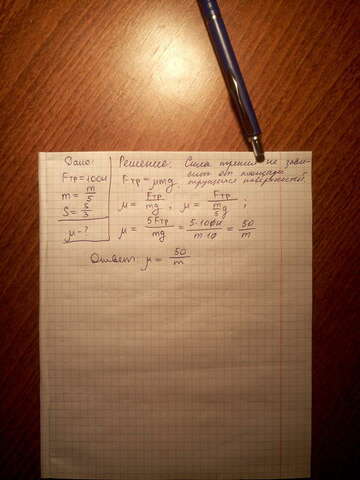 Дано:
Fтр = 100Н
m = m/5
S = S/3
μ - ?
Решение. Сила трения не зави-
сит от площади
трущихся поверхностей.
Fтр = μmg.
μ = Fтр/mg, μ = Fтр/(m/5 g);
μ = 5Fтр/mg = 5·100Н/m·10 = 50/m
Ответ: μ = 50/m